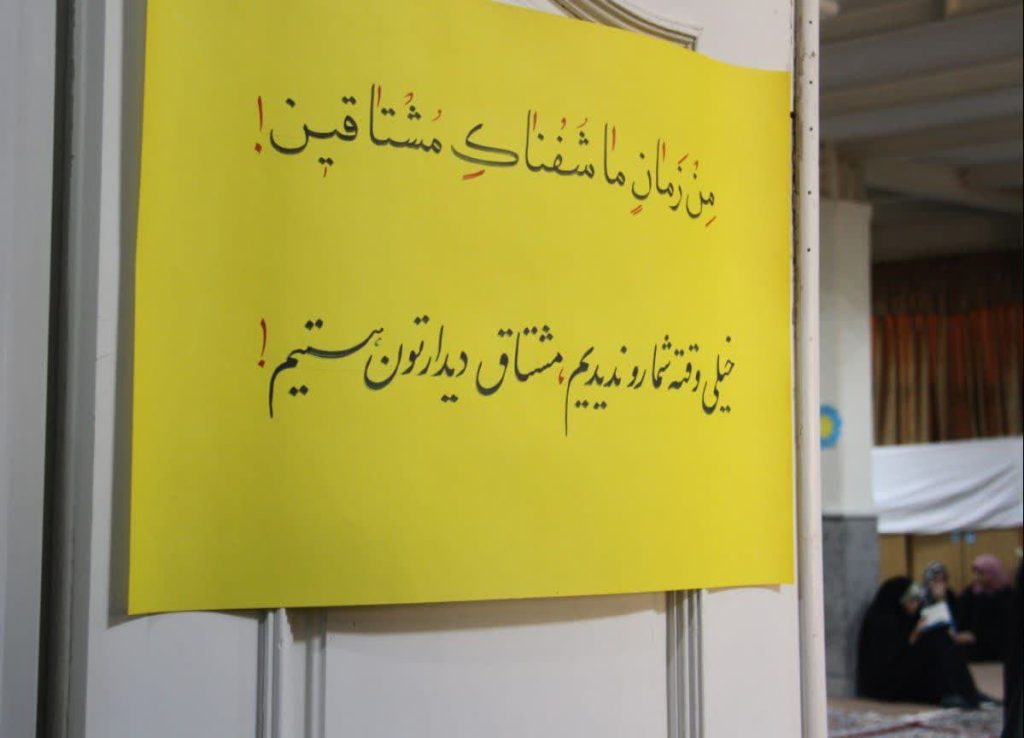 مِنْ زَمانٍ ما شُفُناكِ مُشتاقین!
خیلی وقته شما رو ندیدیم، مشتاق دیدارتون هستیم!